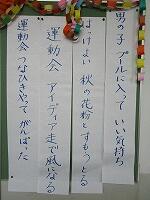 男の子 プールに入って いい気持ち
はっけよい 秋の花粉とすもうとる
運動会 アイディア走で風になる
運動会 つなひきやって がんばった